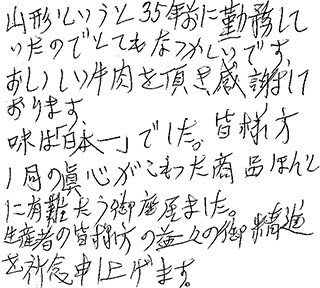 山形というと35年前に勤務して
いたのでとてもなつかしいです。
おいしい牛肉を頂き感謝して
おります。
味は「日本一」でした。皆様方
1同の眞心がこもった商品ほんと
に有難たう御座居ました。
生産者の皆様方の益々の御精進
を祈念申し上げます。